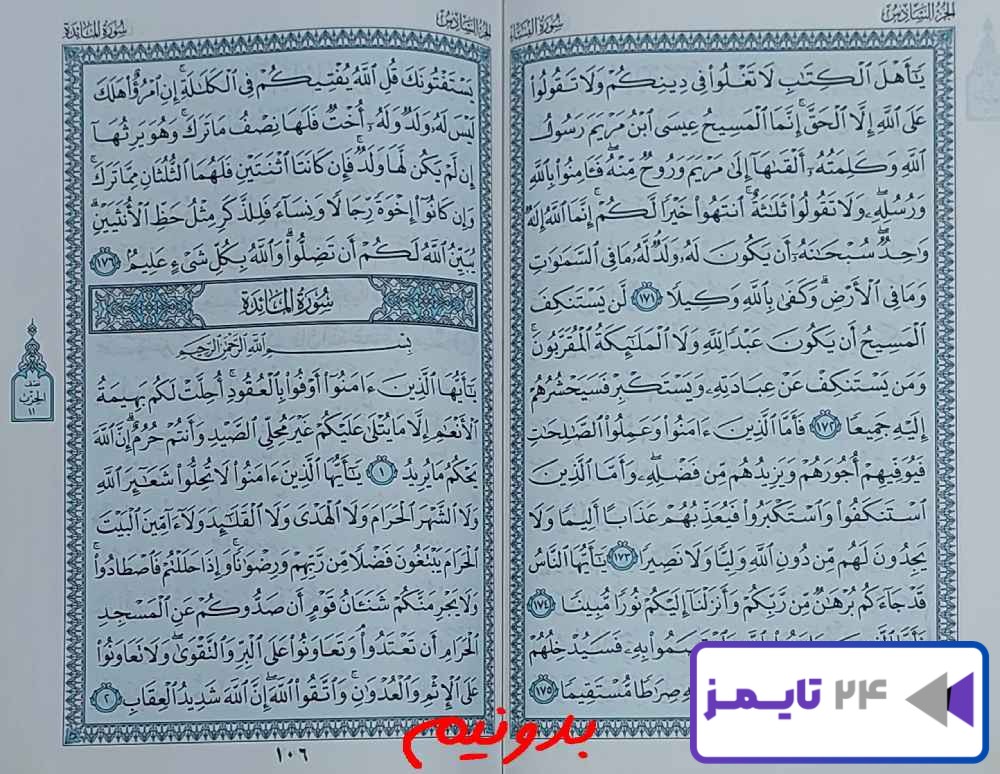 الجزء السادس
سورة النساء
يَٰٓأَهۡلَ ٱلۡكِتَٰبِ لَا تَغۡلُواْ فِي دِينِكُمۡ وَلَا تَقُولُواْ
عَلَى ٱللَّهِ إِلَّا ٱلۡحَقَّۚ إِنَّمَا ٱلۡمَسِيحُ عِيسَى ٱبۡنُ مَرۡيَمَ رَسُولُ
ٱللَّهِ وَكَلِمَتُهُۥٓ أَلۡقَىٰهَآ إِلَىٰ مَرۡيَمَ وَرُوحٞ مِّنۡهُۖ فَـَٔامِنُواْ بِٱللَّهِ
وَرُسُلِهِۦۖ وَلَا تَقُولُواْ ثَلَٰثَةٌۚ ٱنتَهُواْ خَيۡرٗا لَّكُمۡۚ إِنَّمَا ٱللَّهُ إِلَٰهٞ
وَٰحِدٞۖ سُبۡحَٰنَهُۥٓ أَن يَكُونَ لَهُۥ وَلَدٞۘ لَّهُۥ مَا فِي ٱلسَّمَٰوَٰتِ
وَمَا فِي ٱلۡأَرۡضِۗ وَكَفَىٰ بِٱللَّهِ وَكِيلٗا ١٧١ لَّن يَسۡتَنكِفَ
ٱلۡمَسِيحُ أَن يَكُونَ عَبۡدٗا لِّلَّهِ وَلَا ٱلۡمَلَٰٓئِكَةُ ٱلۡمُقَرَّبُونَۚ
وَمَن يَسۡتَنكِفۡ عَنۡ عِبَادَتِهِۦ وَيَسۡتَكۡبِرۡ فَسَيَحۡشُرُهُمۡ
إِلَيۡهِ جَمِيعٗا ١٧٢ فَأَمَّا ٱلَّذِينَ ءَامَنُواْ وَعَمِلُواْ ٱلصَّٰلِحَٰتِ
فَيُوَفِّيهِمۡ أُجُورَهُمۡ وَيَزِيدُهُم مِّن فَضۡلِهِۦۖ وَأَمَّا ٱلَّذِينَ
ٱسۡتَنكَفُواْ وَٱسۡتَكۡبَرُواْ فَيُعَذِّبُهُمۡ عَذَابًا أَلِيمٗا وَلَا
يَجِدُونَ لَهُم مِّن دُونِ ٱللَّهِ وَلِيّٗا وَلَا نَصِيرٗا ١٧٣ يَٰٓأَيُّهَا ٱلنَّاسُ
قَدۡ جَآءَكُم بُرۡهَٰنٞ مِّن رَّبِّكُمۡ وَأَنزَلۡنَآ إِلَيۡكُمۡ نُورٗا مُّبِينٗا ١٧٤
بِهِۦ فَسَيُدۡخِلُهُمۡ
صِرَٰطٗا مُّسۡتَقِيمٗا ١٧٥
الجزء السادس
سورة المائدة
يَسۡتَفۡتُونَكَ قُلِ ٱللَّهُ يُفۡتِيكُمۡ فِي ٱلۡكَلَٰلَةِۚ إِنِ ٱمۡرُؤٌاْ هَلَكَ
لَيۡسَ لَهُۥ وَلَدٞ وَلَهُۥٓ أُخۡتٞ فَلَهَا نِصۡفُ مَا تَرَكَۚ وَهُوَ يَرِثُهَآ
إِن لَّمۡ يَكُن لَّهَا وَلَدٞۚ فَإِن كَانَتَا ٱثۡنَتَيۡنِ فَلَهُمَا ٱلثُّلُثَانِ مِمَّا تَرَكَۚ
وَإِن كَانُوٓاْ إِخۡوَةٗ رِّجَالٗا وَنِسَآءٗ فَلِلذَّكَرِ مِثۡلُ حَظِّ ٱلۡأُنثَيَيۡنِۗ
يُبَيِّنُ ٱللَّهُ لَكُمۡ أَن تَضِلُّواْۗ وَٱللَّهُ بِكُلِّ شَيۡءٍ عَلِيمُۢ ١٧٦
سورة المائدة
بِسۡمِ ٱللَّهِ ٱلرَّحۡمَٰنِ ٱلرَّحِيمِ
يَٰٓأَيُّهَا ٱلَّذِينَ ءَامَنُوٓاْ أَوۡفُواْ بِٱلۡعُقُودِۚ أُحِلَّتۡ لَكُم بَهِيمَةُ
ٱلۡأَنۡعَٰمِ إِلَّا مَا يُتۡلَىٰ عَلَيۡكُمۡ غَيۡرَ مُحِلِّي ٱلصَّيۡدِ وَأَنتُمۡ حُرُمٌۗ إِنَّ ٱللَّهَ
يَحۡكُمُ مَا يُرِيدُ ١ يَٰٓأَيُّهَا ٱلَّذِينَ ءَامَنُواْ لَا تُحِلُّواْ شَعَٰٓئِرَ ٱللَّهِ
وَلَا ٱلشَّهۡرَ ٱلۡحَرَامَ وَلَا ٱلۡهَدۡيَ وَلَا ٱلۡقَلَٰٓئِدَ وَلَآ ءَآمِّينَ ٱلۡبَيۡتَ
ٱلۡحَرَامَ يَبۡتَغُونَ فَضۡلٗا مِّن رَّبِّهِمۡ وَرِضۡوَٰنٗاۚ وَإِذَا حَلَلۡتُمۡ فَٱصۡطَادُواْۚ
وَلَا يَجۡرِمَنَّكُمۡ شَنَـَٔانُ قَوۡمٍ أَن صَدُّوكُمۡ عَنِ ٱلۡمَسۡجِدِ
ٱلۡحَرَامِ أَن تَعۡتَدُواْۘ وَتَعَاوَنُواْ عَلَى ٱلۡبِرِّ وَٱلتَّقۡوَىٰۖ وَلَا تَعَاوَنُواْ
عَلَى ٱلۡإِثۡمِ وَٱلۡعُدۡوَٰنِۚ وَٱتَّقُواْ ٱللَّهَۖ إِنَّ ٱللَّهَ شَدِيدُ ٱلۡعِقَابِ ٢
نصف
الحزب
١١
١٠٦
بدونیم
۲۴ تایمز